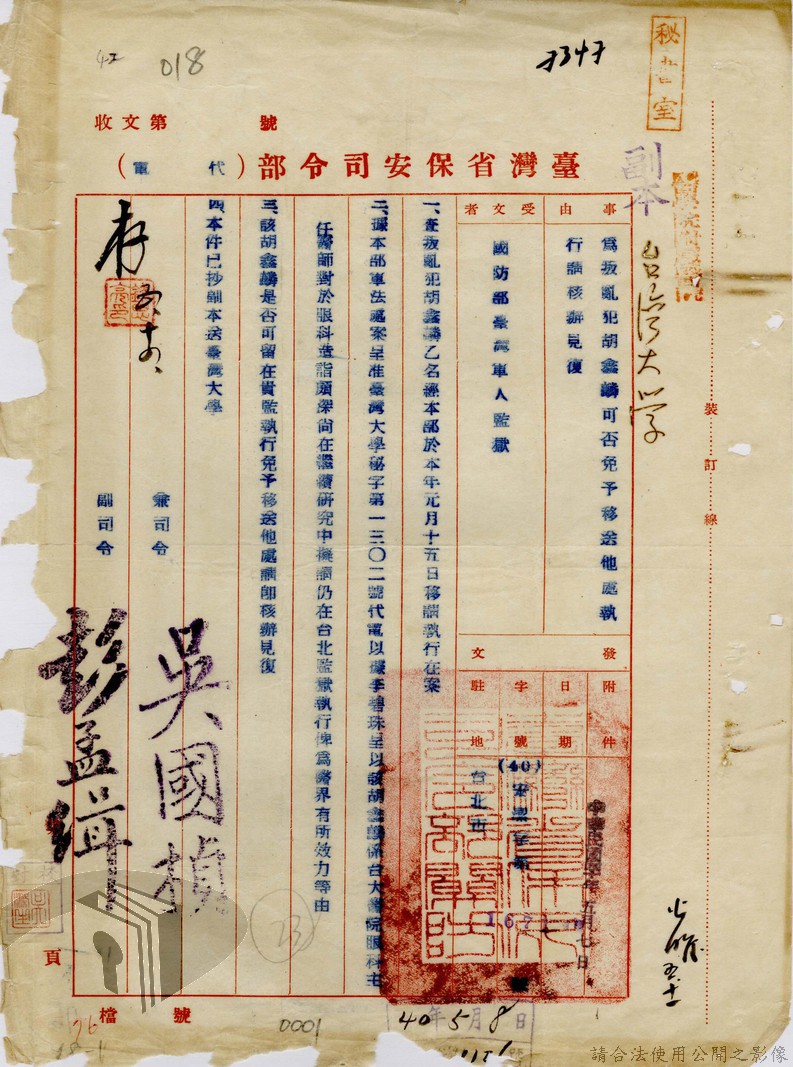 018
7347
秘書室
副本
台灣大學
收文第　號
臺灣省保安司令部（代電）
事由
為叛亂犯胡鑫麟可否免予移送他處執
行請核辦見復
受文者
國防部臺灣軍人監獄
發文
附件
日期
中華民國四十年五月七日
字號
(40)安
號
駐地
台北市
一、查叛亂犯胡鑫麟乙名經本部於本年元月十五日移請執行在案
二、據本部軍法處案呈准臺灣大學秘字第一三〇二號代電以據李碧珠呈以該胡鑫麟係台大醫院眼科主
任醫師對於眼科造詣頗深尚在繼續研究中擬請仍在台北監獄執行俾為醫界有所效力等由
三、該胡鑫麟是否可留在貴監執行免予移送他處請即核辦見復
四、本件已抄副本送臺灣大學
兼司令
吳國楨
副司令
彭孟緝
存
裝訂線
頁
檔　號
23
76
0001
40年5月8日
請合法使用公開之影像